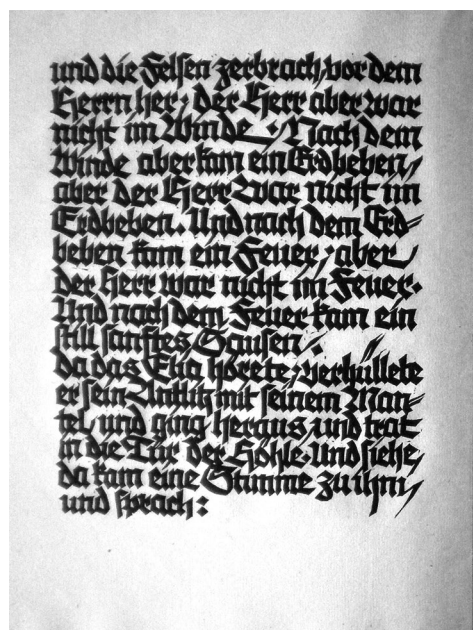 und die Felsen zerbrach, vor dem
Herrn her; der Herr aber war
nicht im Winde. Nach dem
Winde aber kam ein Erdbeben,
aber der Herr war nicht im
Erdbeben. Und nach dem Erd-
beben kam ein Feuer; aber
der Herr war nicht im Feuer.
Und nach dem Feuer kam ein
still sanftes Sausen.
Da das Elia hörete, verhüllete
er sein Antlitz mit seinem Man-
tel und ging heraus und trat
in die Tür der Höhle. Und siehe,
da kam eine Stimme zu ihm,
und sprach: